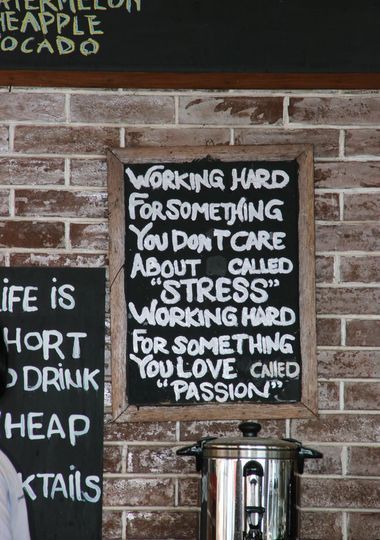 WATERMELON
NEAPPLE
OCADO
WORKING HARD
FOR SOMETHING
YOU DON'T CARE
ABOUT CALLED
"STRESS"
WORKING HARD
FOR SOMETHING
YOU LOVE CALLED
"PASSION"
IFE IS
HORT
DRINK
HEAP
KTAILS